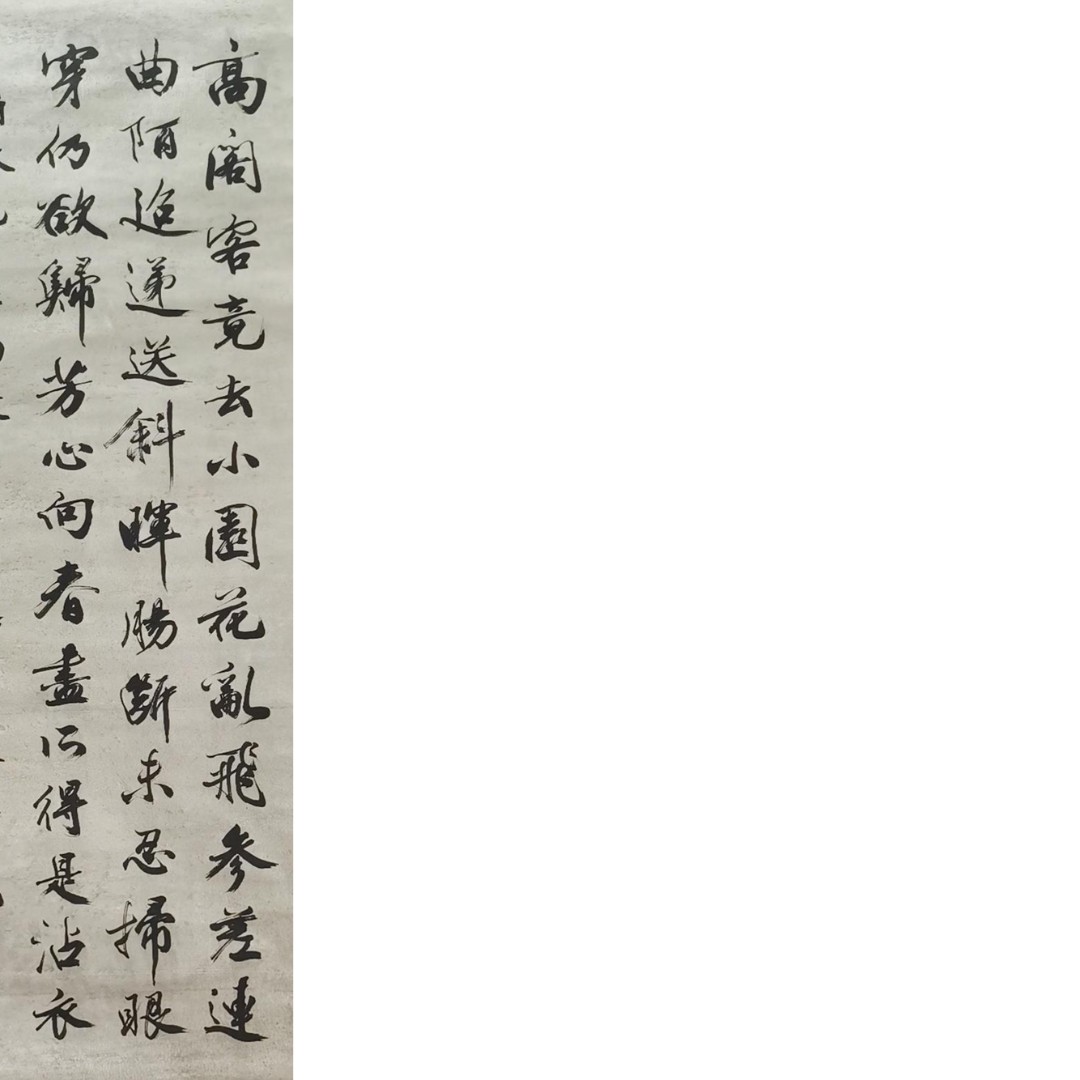 高閣客竟去小園花亂飛參差連
曲陌迢遞送斜暉腸斷未忍掃眼
穿仍欲歸芳心向春盡所得是沾衣